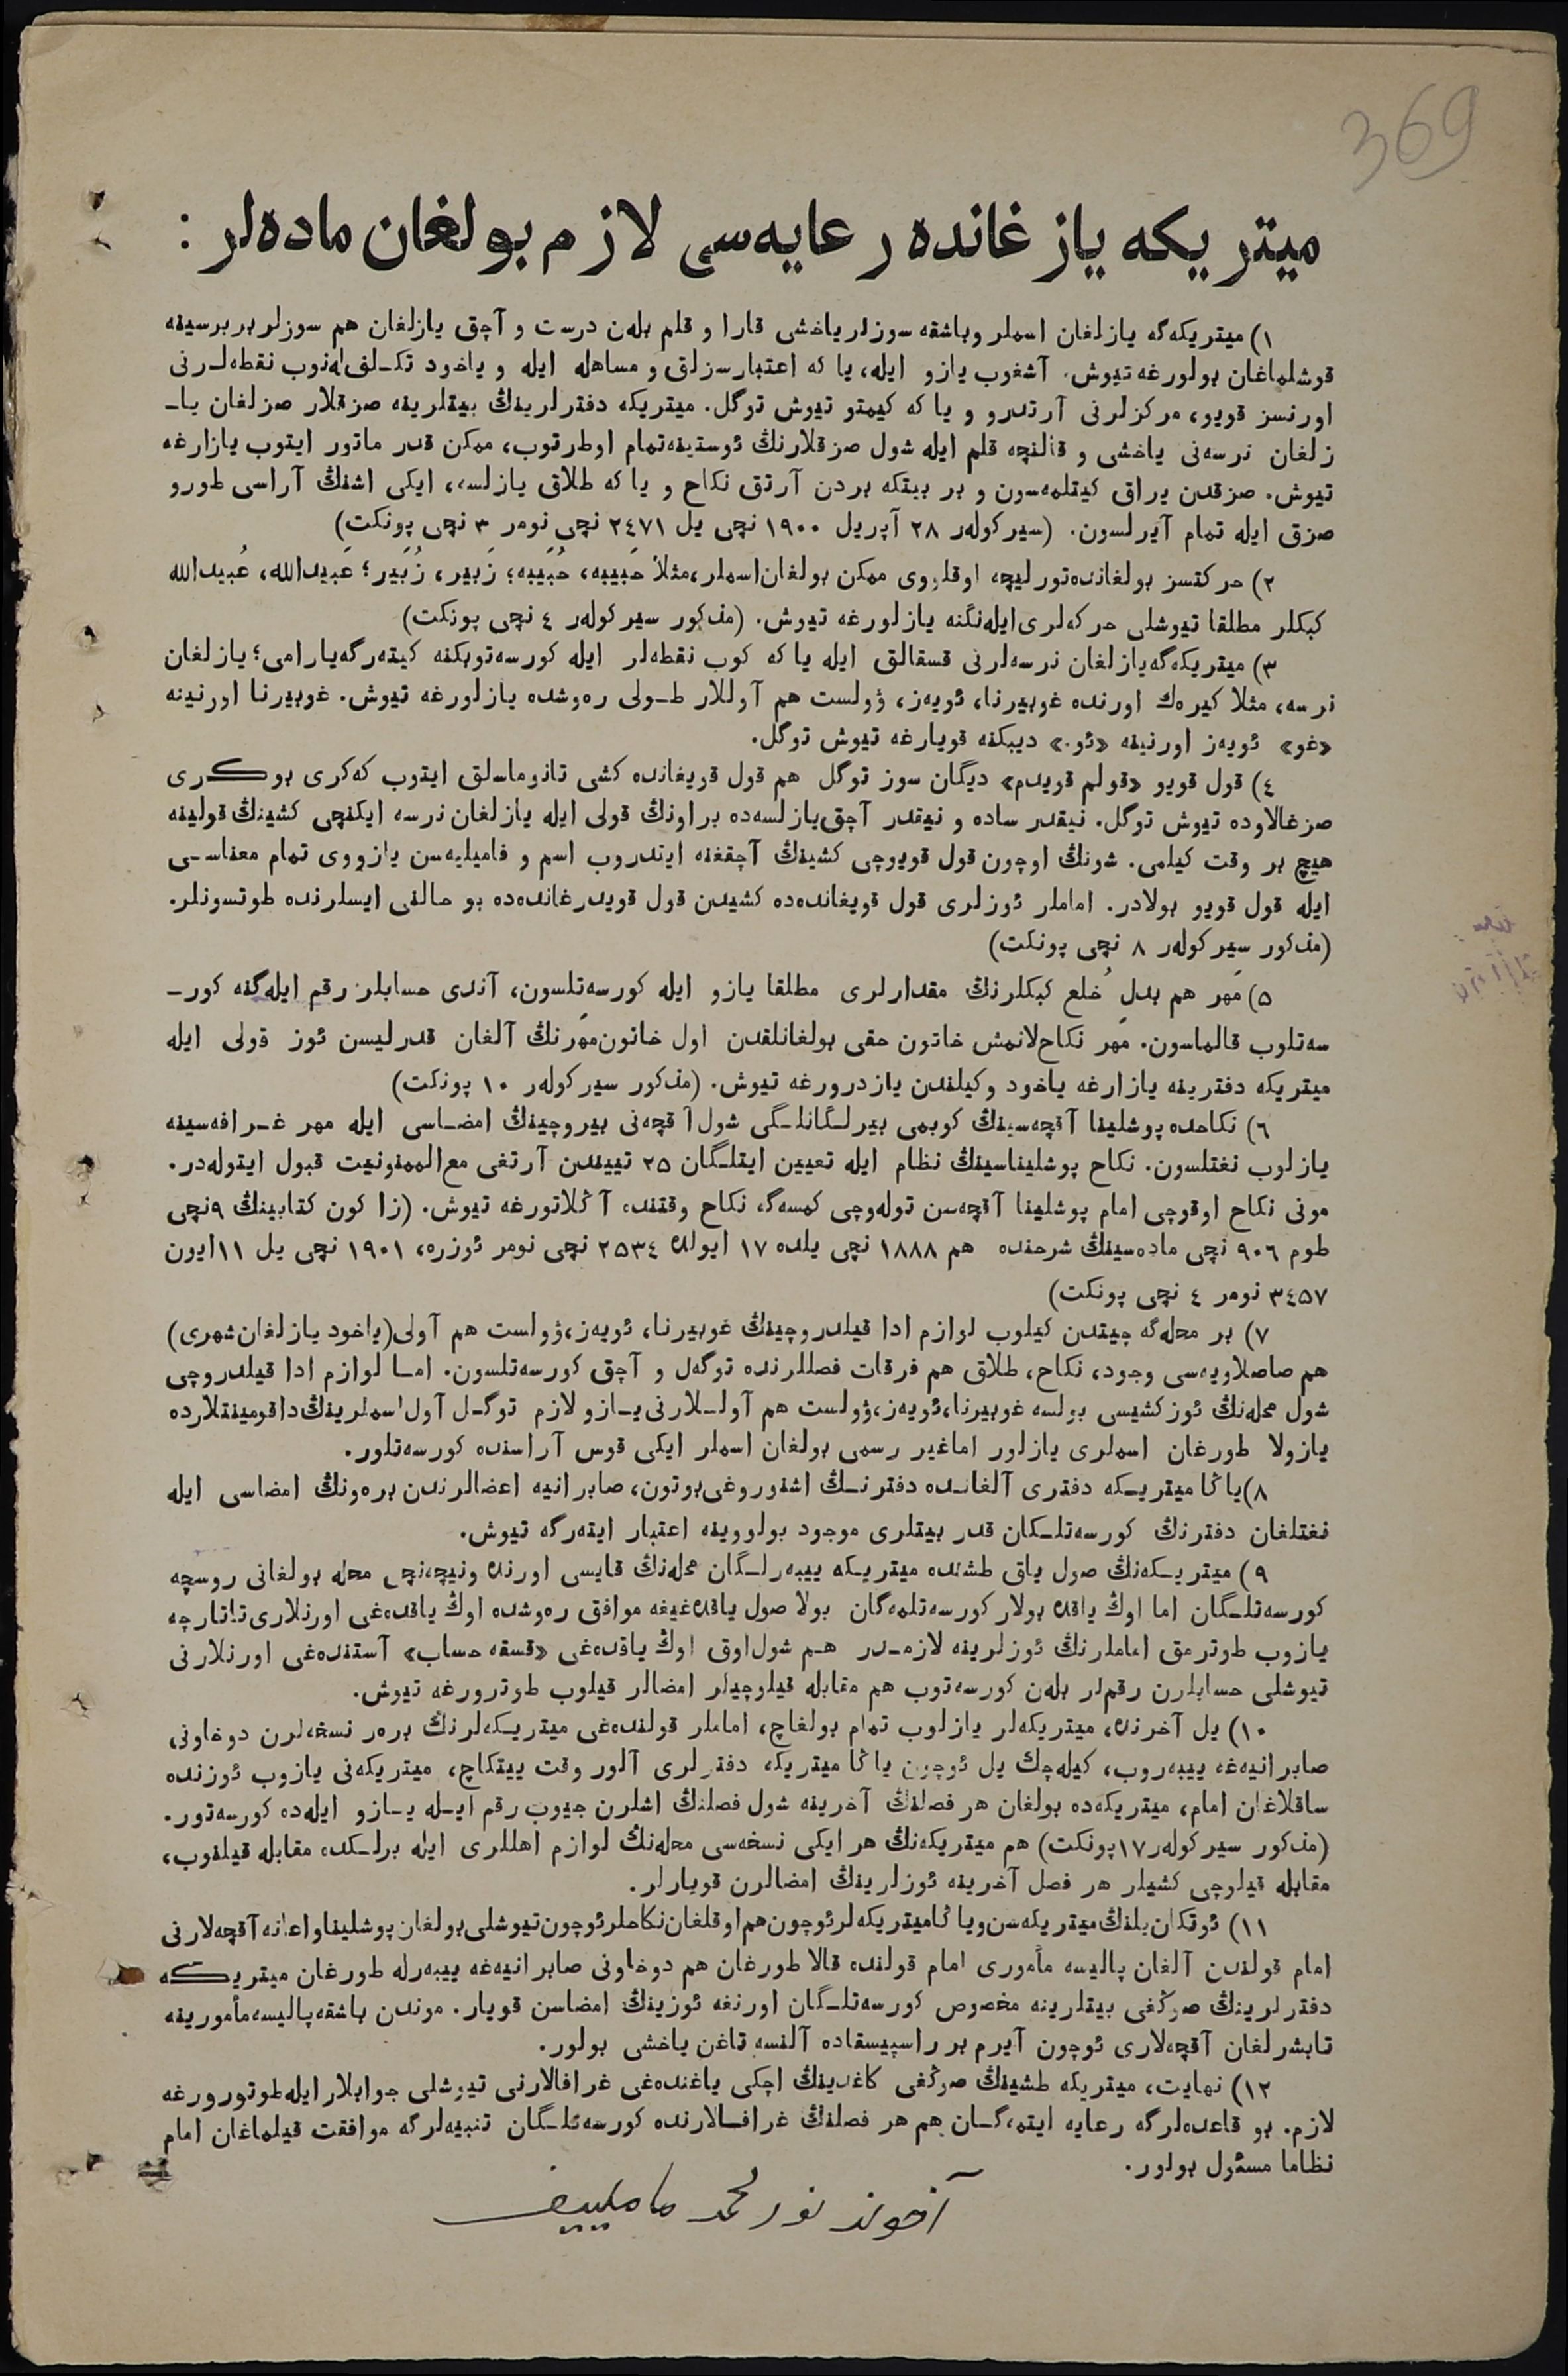 369
ميتريكه يازغانده رعايه‌سى لازم بولغان ماده‌لر :
١) ميتريكه‌گه يازلغان اسملر وباشقه سوزلر ياخشى قارا و قلم بله‌ن درست و آچق يازلغان هم سوزلر بربرسينه
قوشلماغان بولورغه تيوش. آشغوب يازو ايله، يا كه اعتبارسزلق و مساهله ايله و ياخود تكـلف له‌نوب نقطه‌لـرنى
اورنسز قويو، مركزلرنى آرتدرو و يا كه كيمتو تيوش توگل. ميتريكه دفترلرينڭ بيتلرينه صزقلار صزلغان يا-
زلغان نرسه‌نى ياخشى و قالنچه قلم ايله شول صزقلارنڭ ئوستينه تمام اوطرتوب، ممكن قدر ماتور ايتوب يازارغه
تيوش. صزقدن يراق كيتلمه‌سون و بر بيتكه بردن آرتق نكاح و يا كه طلاق يازلسه، ايكى اشنڭ آراسى طورو
صزق ايله تمام آيرلسون. (سيركوله‌ر ٢٨ آپريل ١٩٠٠ نچى يل ٢٤٧١ نچى نومر ٣ نچى پونكت)
٢) حركتسز بولغانده تورليچه اوقلووى ممكن بولغان اسملر، مثلاً حَبيبه، حُبَيبه؛ زَبير، زُبَير؛ عَبيدالله، عُبيدالله
كبكلر مطلقا تيوشلى حركه‌لرى ايله‌نگنه يازلورغه تيوش. (مذكور سيركوله‌ر ٤ نچى پونكت)
٣) ميتريكه‌گه يازلغان نرسه‌لرنى قسقالق ايله يا كه كوب نقطه‌لر ايله كورسه‌توبكنه كيته‌رگه يارامى؛ يازلغان
نرسه، مثلا كيره‌ك اورنده غوبيرنا، ئويه‌ز، ۋولست هم آوللار طـولى ره‌وشده يازلورغه تيوش. غوبيرنا اورنينه
«غو» ئويه‌ز اورنينه «ئو.» ديبكنه قويارغه تيوش توگل.
٤) قول قويو «قولم قويدم» ديگان سوز توگل هم قول قويغانده كشى تانوماسلق ايتوب كه‌كرى بوكـرى
صزغالاوده تيوش توگل. نيقدر ساده و نيقدر آچق يازلسه‌ده براونڭ قولى ايله يازلغان نرسه ايكنچى كشينڭ قولينه
هيچ بر وقت كيلمى. شونڭ اوچون قول قويوچى كشينڭ آچقغنه ايتدروب اسم و فاميليه‌سن يازووى تمام معناسـى
ايله قول قويو بولادر. اماملر ئوزلرى قول قويغانده‌ده كشيدن قول قويدرغانده‌ده بو حالنى ايسلرنده طوتسونلر.
(مذكور سيركوله‌ر ٨ نچى پونكت)
٥) مَهر هم بدلِ خُلع كبكلرنڭ مقدارلرى مطلقا يازو ايله كورسه‌تلسون، آندى حسابلر رقم ايله‌گنه كور-
سه‌تلوب قالماسون. مَهر نكاح‌لانمش خاتون حقى بولغانلقدن اول خاتون مَهرنڭ آلغان قدرليسن ئوز قولى ايله
ميتريكه دفترينه يازارغه ياخود وكيلندن يازدرورغه تيوش. (مذكور سيركوله‌ر ١٠ پونكت)
٦) نكاحده پوشلينا آقچه‌سينڭ كوبمى بيرلـگانلـگى شول آقچه‌نى بيروچينڭ امضـاسى ايله مهر غـرافه‌سينه
يازلوب نغتلسون. نكاح پوشليناسينڭ نظام ايله تعيين ايتلـگان ٢٥ تييندن آرتغى مع‌الممنونيت قبول ايتوله‌در.
مونى نكاح اوقوچى امام پوشلينا آقچه‌سن توله‌وچى كمسه‌گه نكاح وقتنده آڭلاتورغه تيوش. (زاكون كتابينڭ ٩نچى
طوم ٩٠٦ نچى ماده‌سينڭ شرحنده هم ١٨٨٨ نچى يلده ١٧ ايولده ٢٥٣٤ نچى نومر ئوزره، ١٩٠١ نچى يل ١١ ايون
٣٤٥٧ نومر ٤ نچى پونكت)
٧) بر محله‌گه چيتدن كيلوب لوازم ادا قيلدروچينڭ غوبيرنا، ئويه‌ز، ۋولست هم آولى (ياخود يازلغان شهرى)
هم صاصلاويه‌سى وجود، نكاح، طلاق هم فرقات فصللرنده توگه‌ل و آچق كورسه‌تلسون. امـا لوازم ادا قيلدروچى
شول محله‌نڭ ئوز كشيسى بولسه غوبيرنا، ئويه‌ز، ۋولست هم آولـلارنى يـازو لازم توگـل آول اسملرينڭ داقومينتلارده
يازولا طورغان اسملرى يازلور اما غير رسمى بولغان اسملر ايكى قوس آراسنده كورسه‌تلور.
٨) ياڭا ميتريـكه دفترى آلغانـده دفترنـڭ اشنوروغى بوتون، صابرانيه اعضالرندن بره‌ونڭ امضاسى ايله
نغتلغان دفترنڭ كورسه‌تلـكان قدر بيتلرى موجود بولووينه اعتبار ايته‌رگه تيوش.
٩) ميتريـكه‌نڭ صول ياق طشنده ميتريـكه يبه‌رلـگان محله‌نڭ قايسى اورنده ونيچه‌نچى محله بولغانى روسچه
كورسه‌تلـگان اما اوڭ ياقده بولار كورسه‌تلمه‌گان بولا صول ياقده‌غيغه موافق ره‌وشده اوڭ ياقده‌غى اورنلارى تاتارچه
يازوب طوترمق اماملرنڭ ئوزلرينه لازمـدر هـم شول اوق اوڭ ياقده‌غى «قسقه حساب» آستنده‌غى اورنلارنى
تيوشلى حسابلرن رقم‌لر بله‌ن كورسه‌توب هم مقابله قيلوچيلر امضالر قيلوب طوترورغه تيوش.
١٠) يل آخرنده، ميتريكه‌لر يازلوب تمام بولغاچ، اماملر قولنده‌غى ميتريـكه‌لرنڭ بره‌ر نسخه‌لرن دوخاونى
صابرانيه‌غه ييبه‌روب، كيله‌چك يل ئوچون ياڭا ميتريكه دفترلرى آلور وقت ييتكاچ، ميتريكه‌نى يازوب ئوزنده
ساقلاغان امام، ميتريكه‌ده بولغان هر فصلنڭ آخرينه شول فصلنڭ اشلرن جيوب رقم ايـله يـازو ايله‌ده كورسه‌تور.
(مذكور سيركوله‌ر ١٧ پونكت) هم ميتريكه‌نڭ هر ايكى نسخه‌سى محله‌نڭ لوازم اهللرى ايله برلـكده مقابله قيلنوب،
مقابله قيلوچى كشيلر هر فصل آخرينه ئوزلرينڭ امضالرن قويارلر.
١١) ئوتكان يلنڭ ميتريكه‌سن و ياڭا ميتريكه‌لر ئوچون هم اوقلغان نكاحلر ئوچون تيوشلى بولغان پوشلينا و اعانه آقچه‌لارنى
امام قولندن آلغان پاليسه مأمورى امام قولنده قالا طورغان هم دوخاونى صابرانيه‌غه ييبه‌رله طورغان ميتريـكه
دفترلرينڭ صوڭغى بيتلرينه مخصوص كورسه‌تلـگان اورنغه ئوزينڭ امضاسن قويار. موندن باشقه پاليسه مأمورينه
تابشرلغان آقچه‌لارى ئوچون آيرم بر راسپيسقاده آلنسه تاغن ياخشى بولور.
١٢) نهايت، ميتريكه طشينڭ صوڭغى كاغدينڭ اچكى ياغنده‌غى غرافالارنى تيوشلى جوابلار ايله طوتورورغه
لازم. بو قاعده‌لرگه رعايه ايتمه‌گـان هم هر فصلنڭ غرافـالارنده كورسه‌تلـگان تنبيه‌لرگه موافقت قيلماغان امام
نظاما مسئول بولور.
آخوند نور محمد ماملييف